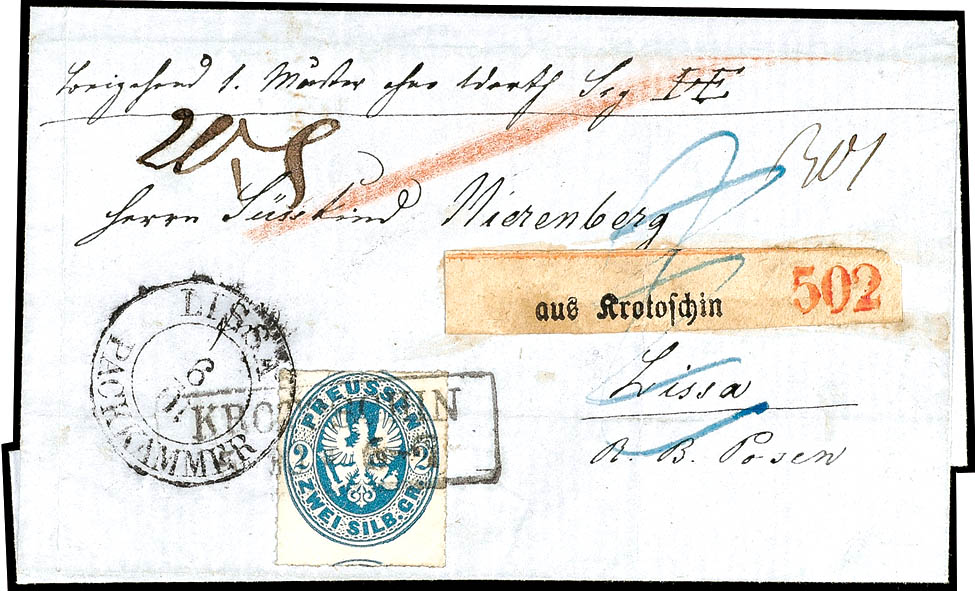 beigehend 1. Muster ohne Werth Sig FE
Herrn Süskind Nierenberg
aus Krotoschin 502
Lissa
R. B. Posen
LISSA
6
PACKKAMMER
PREUSSEN
2 2
ZWEI SILB. GR.